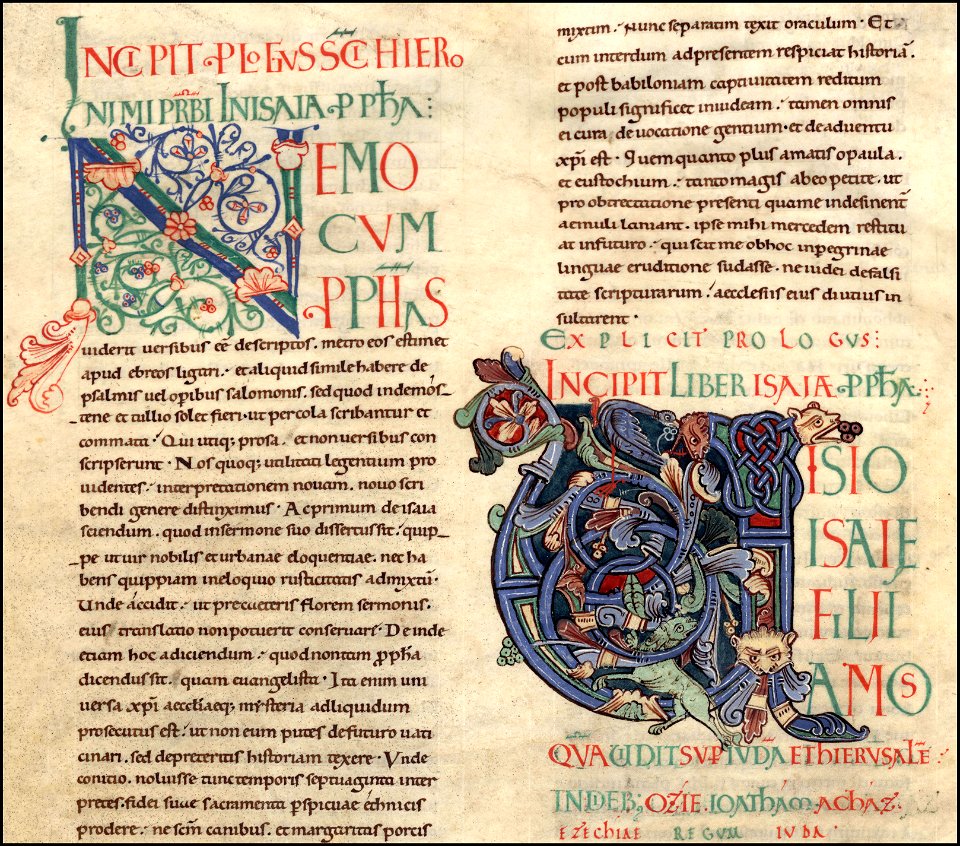 INCIPIT PLOGUS SCI HIERO
NIMI PRBI IN ISAIA PPHA:
NEMO
CUM
PPHAS
uiderit uersibus eē descriptos. metro eos estimet
apud ebreos ligari. et aliquid simile habere de
psalmis uel opibus salomonis. sed quod in demos-
tene et tullio solet fieri. ut per cola scribantur et
commata. Qui utiq; prosa. et non uersibus con
scripserunt. Nos quoq; utilitati legentium pro
uidentes. interpretationem nouam. nouo scri
bendi genere distinximus. Ac primum de isaia
sciendum. quod in sermone suo dissertus sit. quip-
pe ut uir nobilis et urbanae eloquentiae. nec ha
bens quippiam in eloquio rusticitatis admixtū.
Unde accidit. ut pre ceteris florem sermonis.
eius translatio non potuerit conseruari. Deinde
etiam hoc adiciendum. quod non tam ppha
dicendus sit. quam euangelista. Ita enim uni
uersa xpi aeccliaeq; mysteria ad liquidum
prosecutus est. ut non eum putes de futuro uati
cinari. sed de preteritis historiam texere. Unde
conitio. noluisse tunc temporis septuaginta inter
pretes. fidei suae sacramenta pspicuae ethnicis
prodere. ne scm canibus. et margaritas porcis
mixtim. Nunc separatim texit oraculum. Et
cum interdum ad presentem respiciat historiā.
et post babiloniam captiuitatem reditum
populi significet in iudeam. tamen omnis
ei cura. de uocatione gentium. et de aduentu
xpi est. Quem quanto plus amatis o paula.
et eustochium. tanto magis ab eo petite. ut
pro obtrectatione presenti qua me indesinent
aemuli laniant. ipse mihi mercedem restitu
at in futuro. qui scit me ob hoc in pegrinae
linguae eruditione sudasse. ne iudei de falsi
tate scripturarum. aecclesiis eius diutius in
sultarent.
EXPLICIT PROLOGUS:
INCIPIT LIBER ISAIA PPHA
VISIO
ISAIĘ
FILII
AMOS
QUA UIDIT SUP IUDA ET HIERUSALĒ
IN DIEB; OZIE. IOATHAM. ACHAZ.
EZECHIAE REGUM IUDA